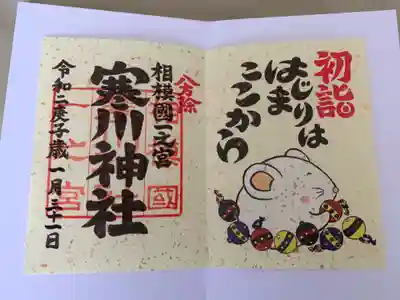 初詣
はじまりは
ここから
八方除
相模國一之宮
寒川神社
令和二庚子歳一月三十一日